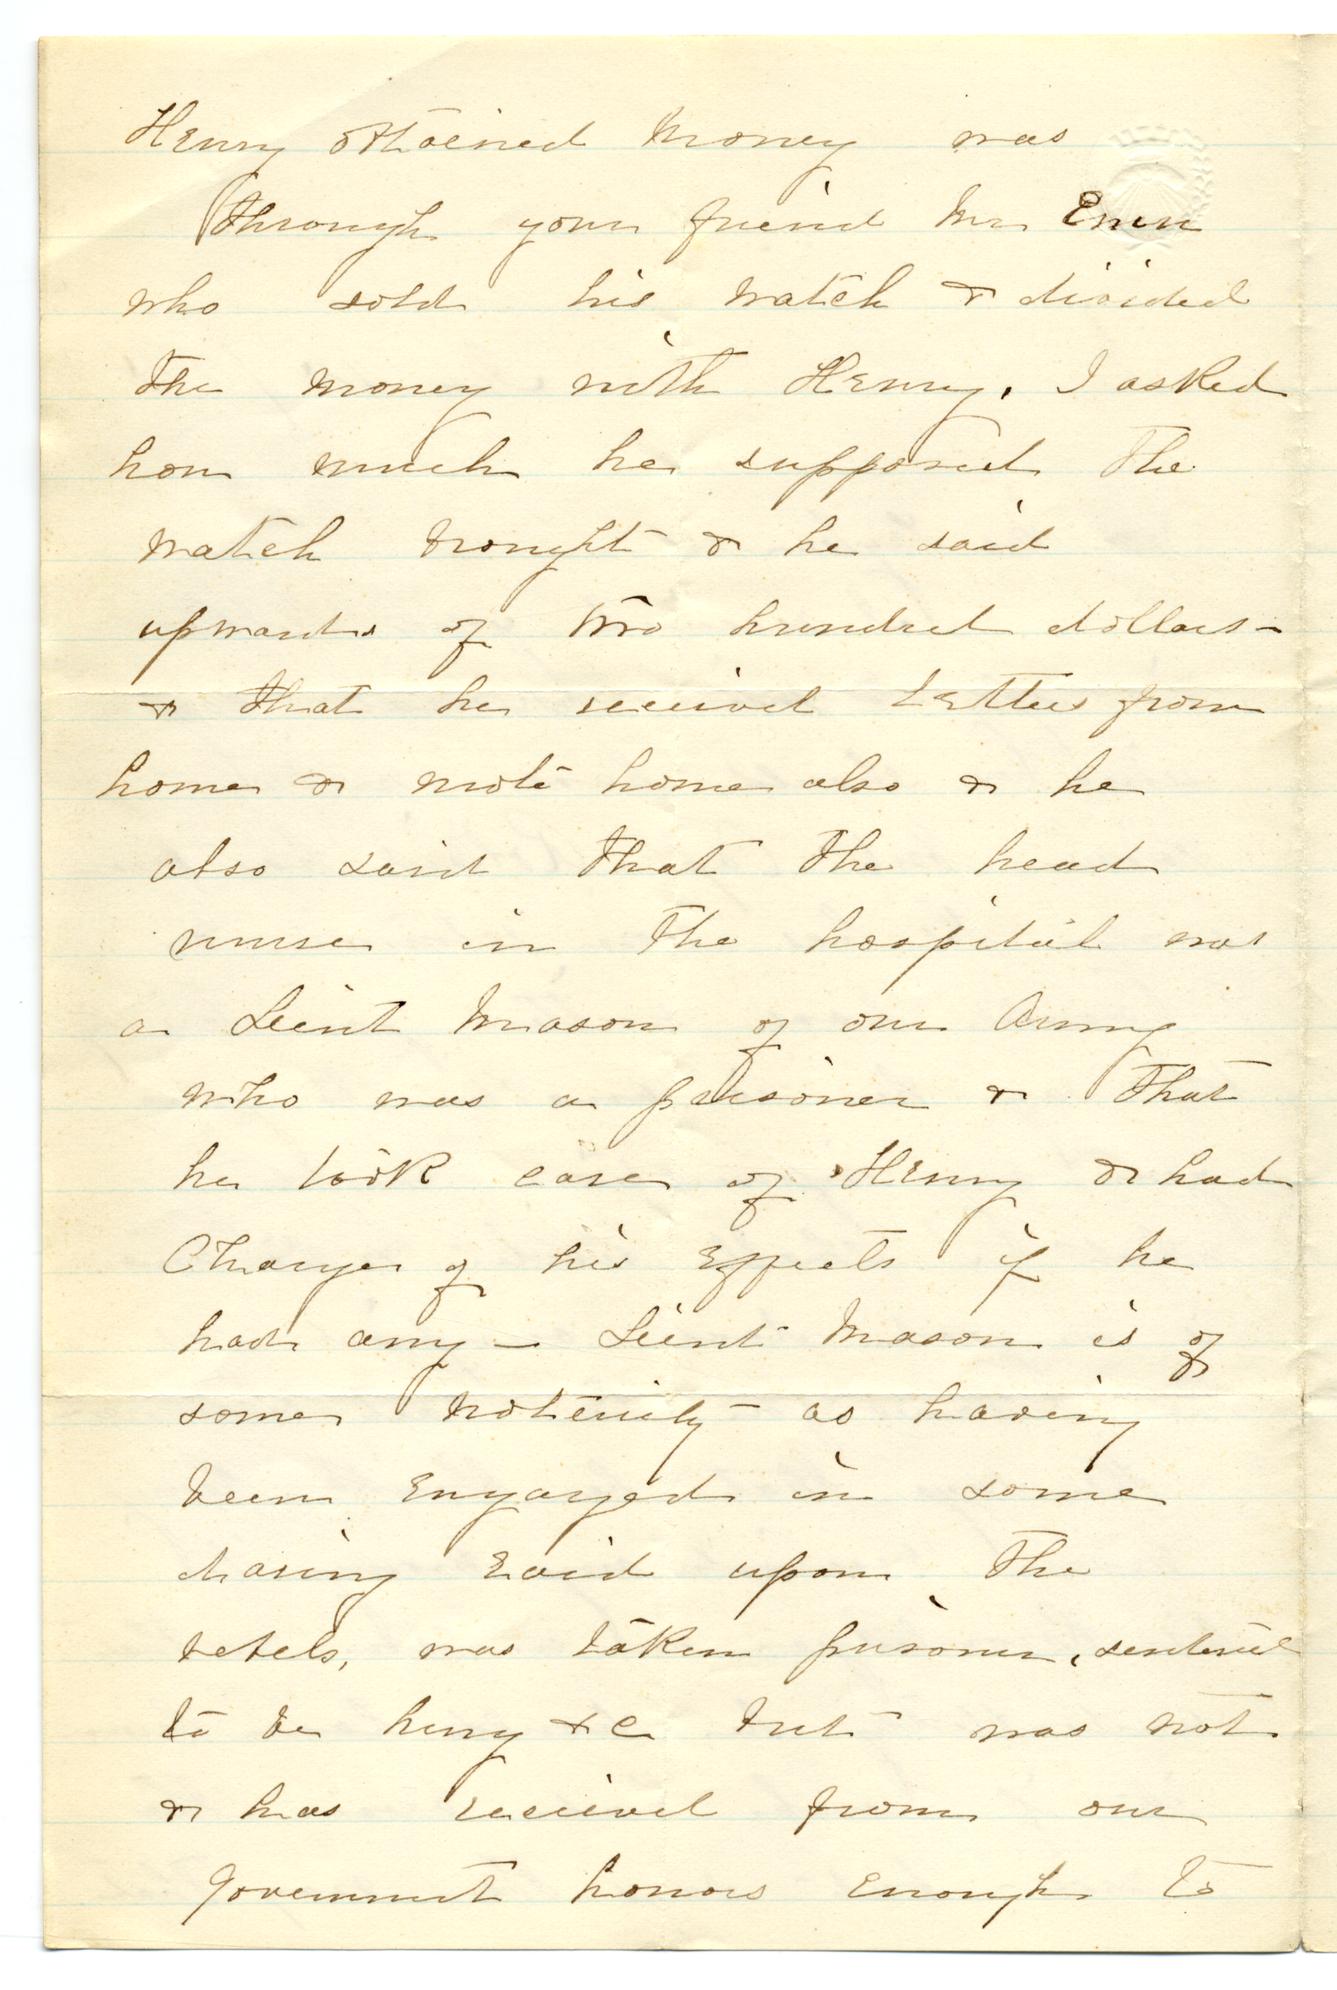 Henry obtained money was
through your friend Mr
who sold his watch & divided
the money with Henry. I asked
how much he supposed the
watch brought & he said
upwards of two hundred dollars -
& that he received letters from
home & wrote home also & he
also said that the head
nurse in the hospital was
a Lieut Mason of our Army
who was a prisoner & that
he took care of Henry & had
Charge of his Effects if he
had any - Lieut Mason is of
some notoriety as having
been Engaged in some
daring raid upon the
rebels, was taken prisoner, sentenced
to be hung &c but was not
& has received from our
Government honors enough to